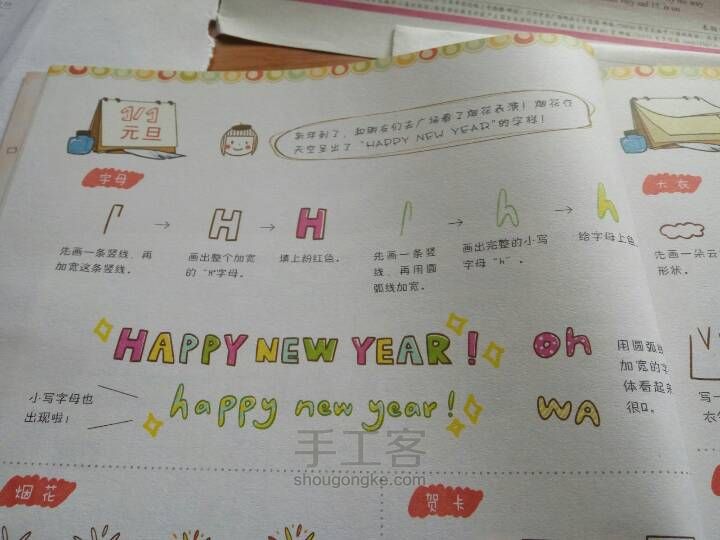 1/1
元旦
新年到了,和朋友们去广场看了烟花表演!烟花在
天空呈出了"HAPPY NEW YEAR"的字样!
字母
大衣
H
H
h
h
先画一条竖线,再
加宽这条竖线。
画出整个加宽
的"H"字母。
填上粉红色。
先画一条竖
线,再用圆
弧线加宽。
画出完整的小写
字母"h"。
给字母上色
先画一朵云
形状。
HAPPY NEW YEAR!
happy new year!
小写字母也
出现啦!
oh
WA
用圆弧
加宽的字
体看起来
很Q。
写一
手工客
shougongke.com
烟花
贺卡